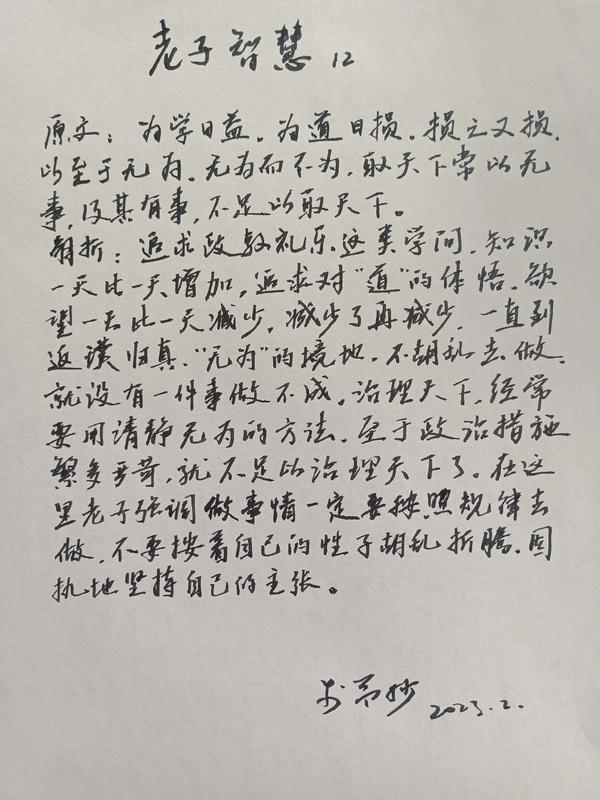 老子智慧 12
原文：为学日益，为道日损，损之又损，
以至于无为，无为而不为，取天下常以无
事，及其有事，不足以取天下。
解析：追求政教礼乐这类学问，知识
一天比一天增加，追求对“道”的体悟，欲
望一天比一天减少，减少了再减少，一直到
返璞归真，“无为”的境地，不胡乱去做，
就没有一件事做不成。治理天下，经常
要用清静无为的方法，至于政治措施
繁多严苛，就不足以治理天下了。在这
里老子强调做事情一定要按照规律去
做，不要按着自己的性子胡乱折腾，固
执地坚持自己的主张。
抄 2023.2.